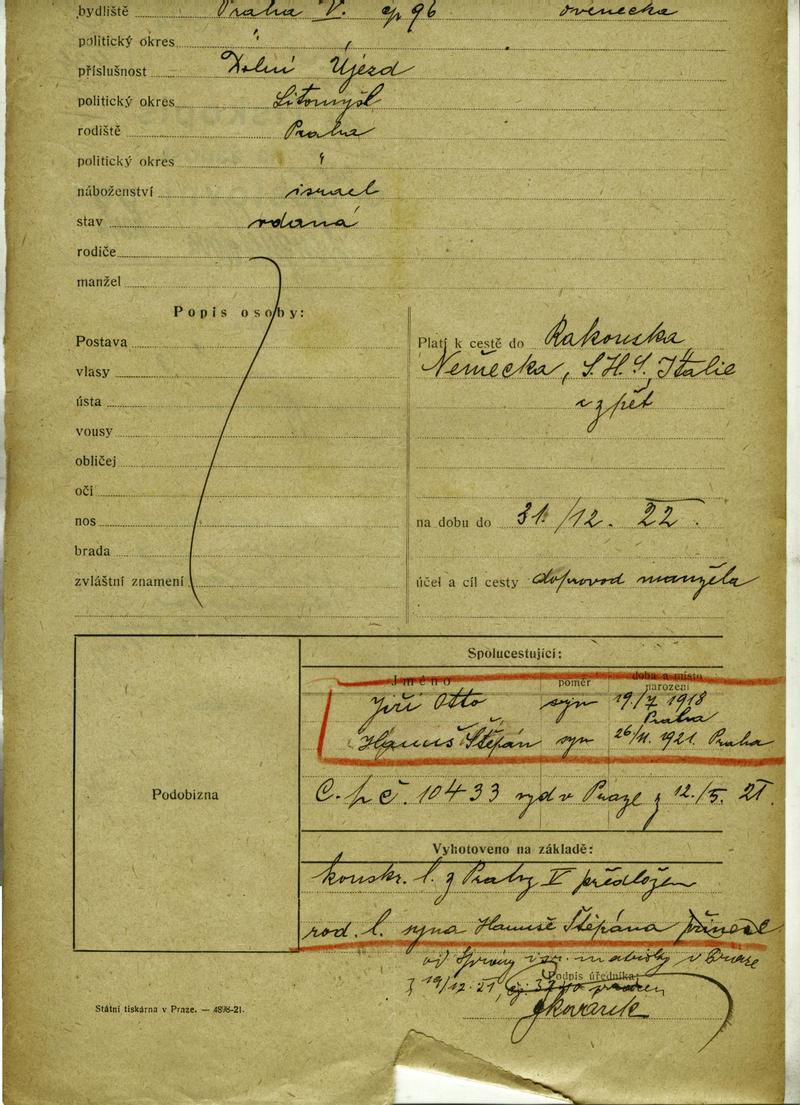 bydliště Praha V. čp 96 Ovenecka
politický okres "
příslušnost Dolní Újezd
politický okres Litomyšl
rodiště Praha
politický okres "
náboženství israel
stav vdaná
rodiče
manžel
Popis osoby:
Postava
vlasy
ústa
vousy
obličej
oči
nos
brada
zvláštní znamení
Platí k cestě do Rakouska,
Německa, S.H.S., Italie
a zpět
na dobu do 31./12. 22.
účel a cíl cesty doprovod manžela
Podobizna
Spolucestující:
Jméno poměr doba a místo narození
Jiří Otto syn 19/7 1918 Praha
Hanuš Štěpán syn 26/11. 1921. Praha
C. p. č. 10433 vyd v Praze z 12./5. 21.
Vyhotoveno na základě:
konskr. l. z Prahy V předložen
rod. l. syna Hanuše Štěpána
od Správy isr. matriky v Praze
z 19/12. 21,
Podpis úředníka:
Kovařík
Státní tiskárna v Praze. — 4898-21.